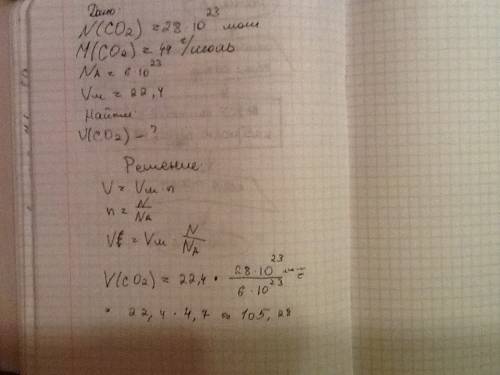 Дано:
N(CO₂) = 28 · 10²³ мол
M(CO₂) = 44 г/моль
Nᴀ = 6 · 10²³
Vм = 22,4
Найти:
V(CO₂) - ?
Решение:
V = Vм · n
n = N/Nᴀ
V = Vм · N/Nᴀ
V(CO₂) = 22,4 · 28 · 10²³/6 · 10²³ =
= 22,4 · 4,7 = 105,28